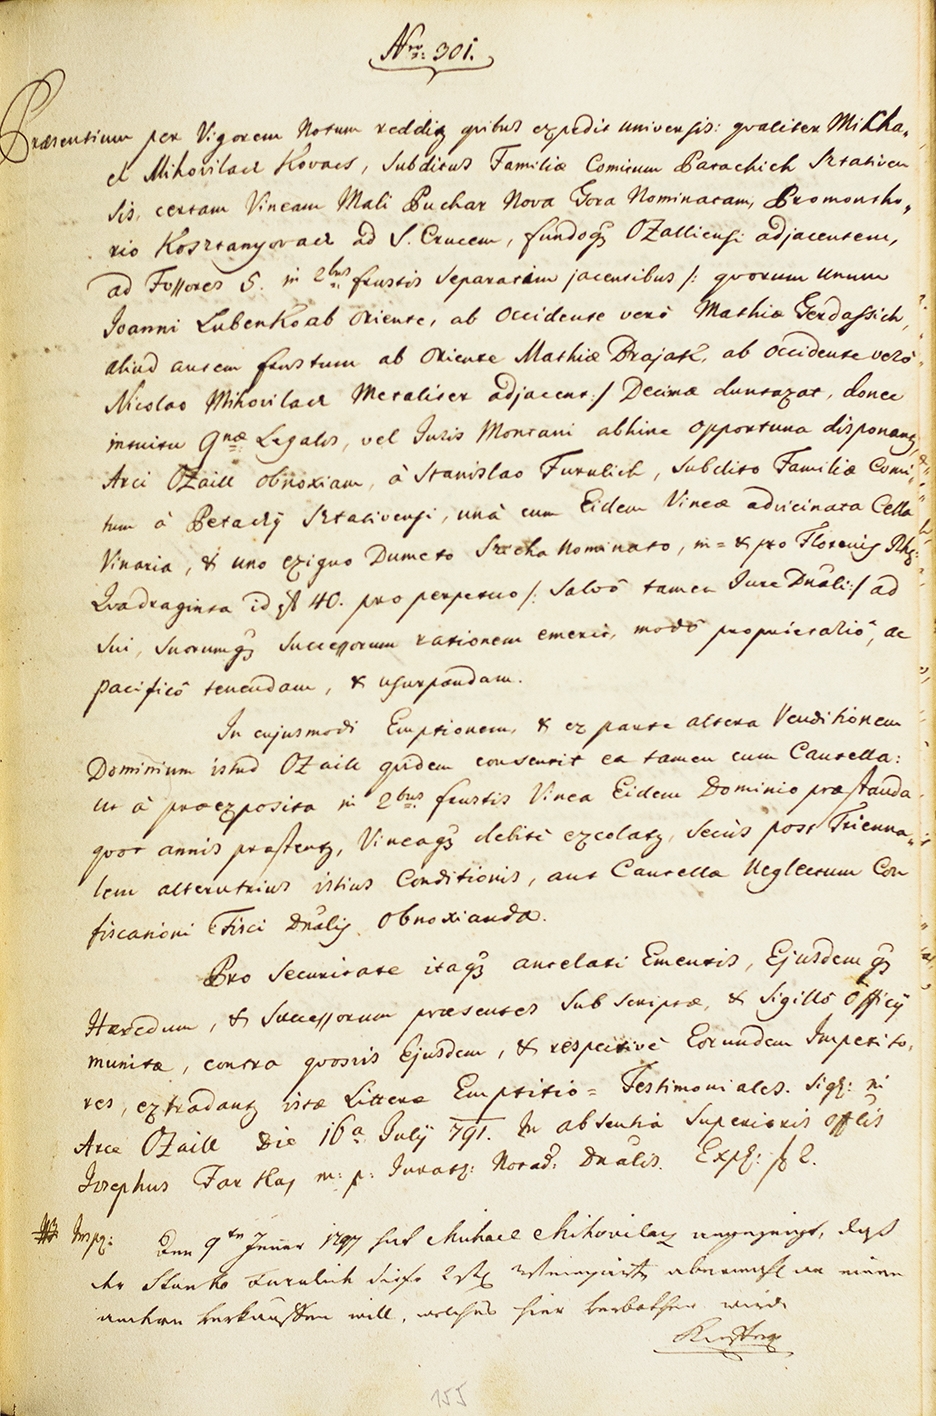 Nro: 301.
Præsentium per Vigorem Notum redditq quibus expedit universis: qualiter Micha„
el Mihovilacz Kovacs, subditus Familiæ Comitum Patachich Sztativen
sis, certam Vineam Mali Puchar Nova Gora Nominatam, Promontho„
rio Kosztanyovacz ad S. Crucem, fundoq Ozalliensi adjacentem,
ad Fossores 5. in 2bus frustis separatim jacentibus /: quorum unum
Joanni Lubenko ab oriente, ab occidente verò Mathiæ Gerdassich,
aliud autem frustum ab oriente Mathiæ Brajak, ab occidente verò
Nicolao Mihovilacz Metaliter adjacent :/ Decimæ duntaxat, donec
intuitu gnæ Legalis, vel Juris Montani abhinc opportuna disponantq,
Arci Ozaill obnoxiam, à Stanislao Furulich, subdito Familiæ Comi„
tum à Petachÿ Sztativensi, unà cum Eidem Vineæ advicinata Cella
Vinaria, & uno exiguo Dumeto Szecha nominato, in = & pro Florenis Rhg:
Quadraginta id f 40. pro perpetuo /: salvô tamen Jure Dnali :/ ad
sui, suorumq successorum rationem emerit, modô proprietariô, ac
pacificô tenendam, & usurpandam.
In cujusmodi Emptionem, & ex parte altera Venditionem
Dominium istud Ozaill quidem consentit ea tamen cum Cautella:
ut à præexposita in 2bus frustis Vinea Eidem Dominio præstanda
quot annis præstentq, Vineaq debitè excolatq, secùs post Trienna„
lem alterutrius istius Conditionis, aut Cautella Neglectum Con
fiscationi Fisci Dnalis obnoxianda.
Pro securitate itaq antelati Ementis, Ejusdemq
Hæredum, & successorum præsentes subscriptæ, & sigillô officÿ
munitæ, contra quosvis Ejusdem, & respectivè Eorundem Impetito„
res, extradantq istæ Litteræ Emptitio = Testimoniales. Sig: in
Arce Ozaill Die 16a Julÿ 791. In absentia superioris offlis
Josephus Farkas m: p: Juratq: Notaq: Dnalis. Expq: f 2.
NB Inspq: Den 9ten Jenner 1797 hat Michael Mihovilacz angezeigt, daß
ihr Stanko Furulich diese 2 abermahl an einen
andern verkauffen will, welches hier verbothen wird
155